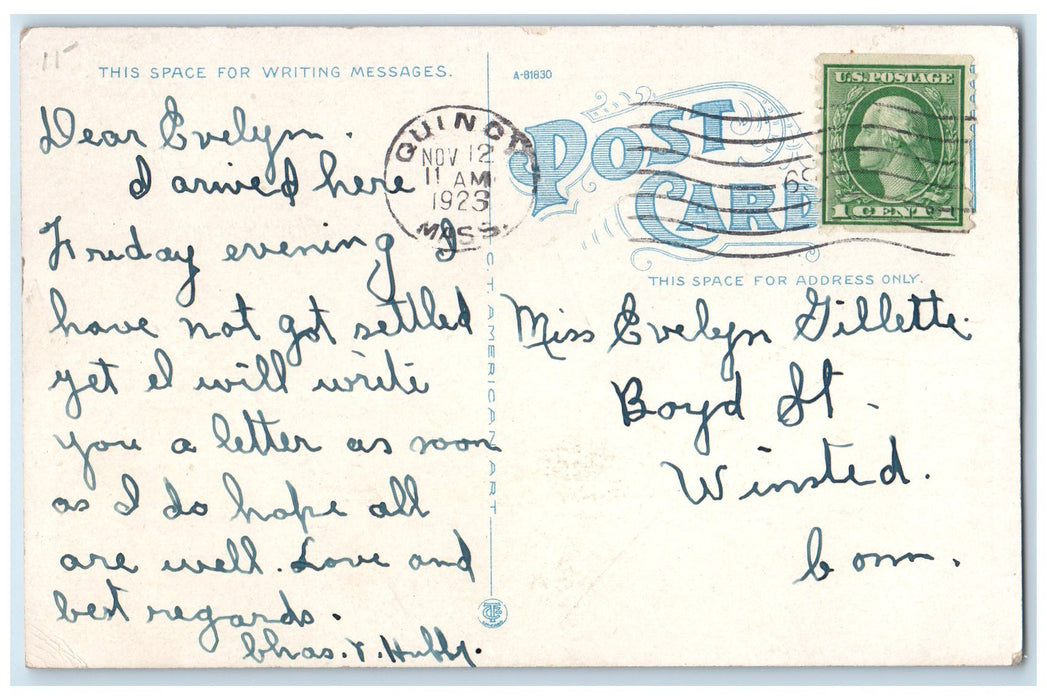 15
THIS SPACE FOR WRITING MESSAGES.
Dear Evelyn.
I arived here
Friday evening I
have not got settled
yet I will write
you a letter as soon
as I do hope all
are well. Love and
best regards.
Chas. T. Hubby.
A-81830
POST CARD
QUINCY
NOV 12
11 AM
1923
MASS.
U.S. POSTAGE
1 CENT 1
C.T. AMERICAN ART
THIS SPACE FOR ADDRESS ONLY.
Miss Evelyn Gillette.
Boyd St.
Winsted.
Conn.